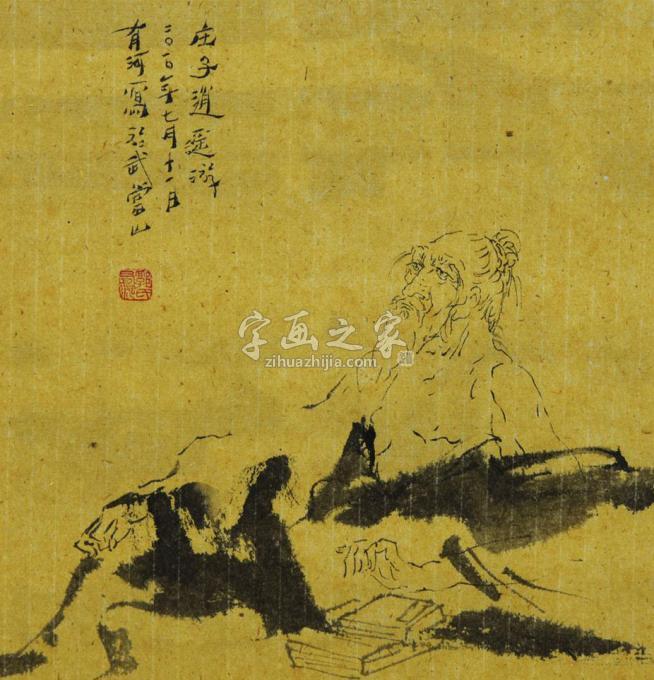 庄子逍遥游
二〇一〇年七月十一日
有河寫於武當山
字画之家
zihuazhijia.com